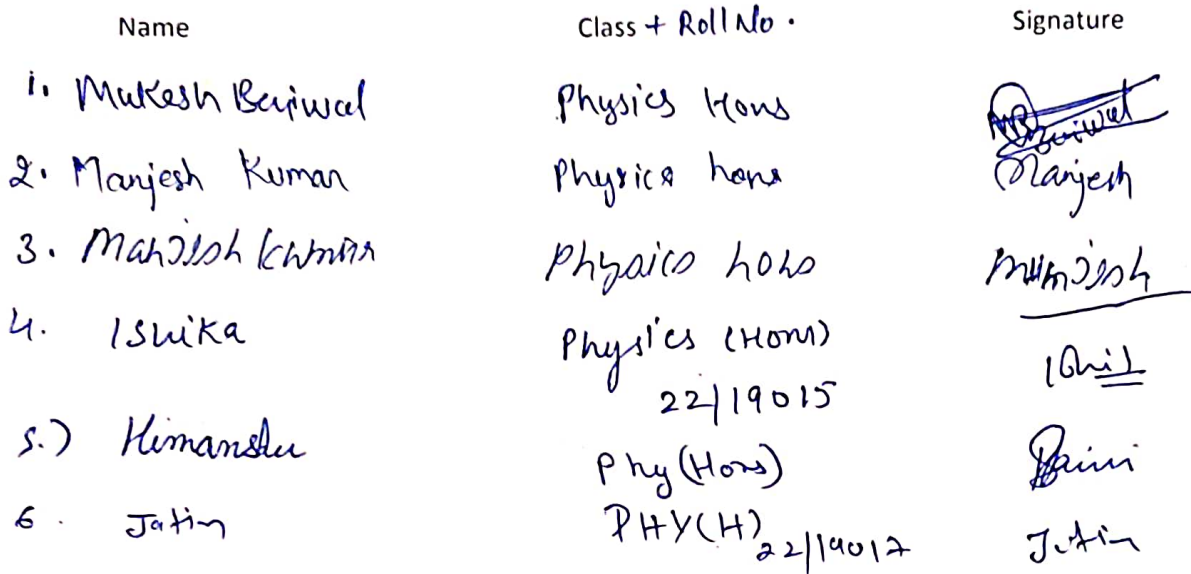 Name Class + Roll No. Signature
1. Mukesh Beriwal Physics Hons Beriwal
2. Manjesh Kumar Physics hons Manjesh
3. Manjesh Kumar Physics hons
4. Ishika Physics (Hons)
22/19015
5.) Himanshu Phy (Hons) Saini
6. Jatin PHY(H) 22/19017 Jatin